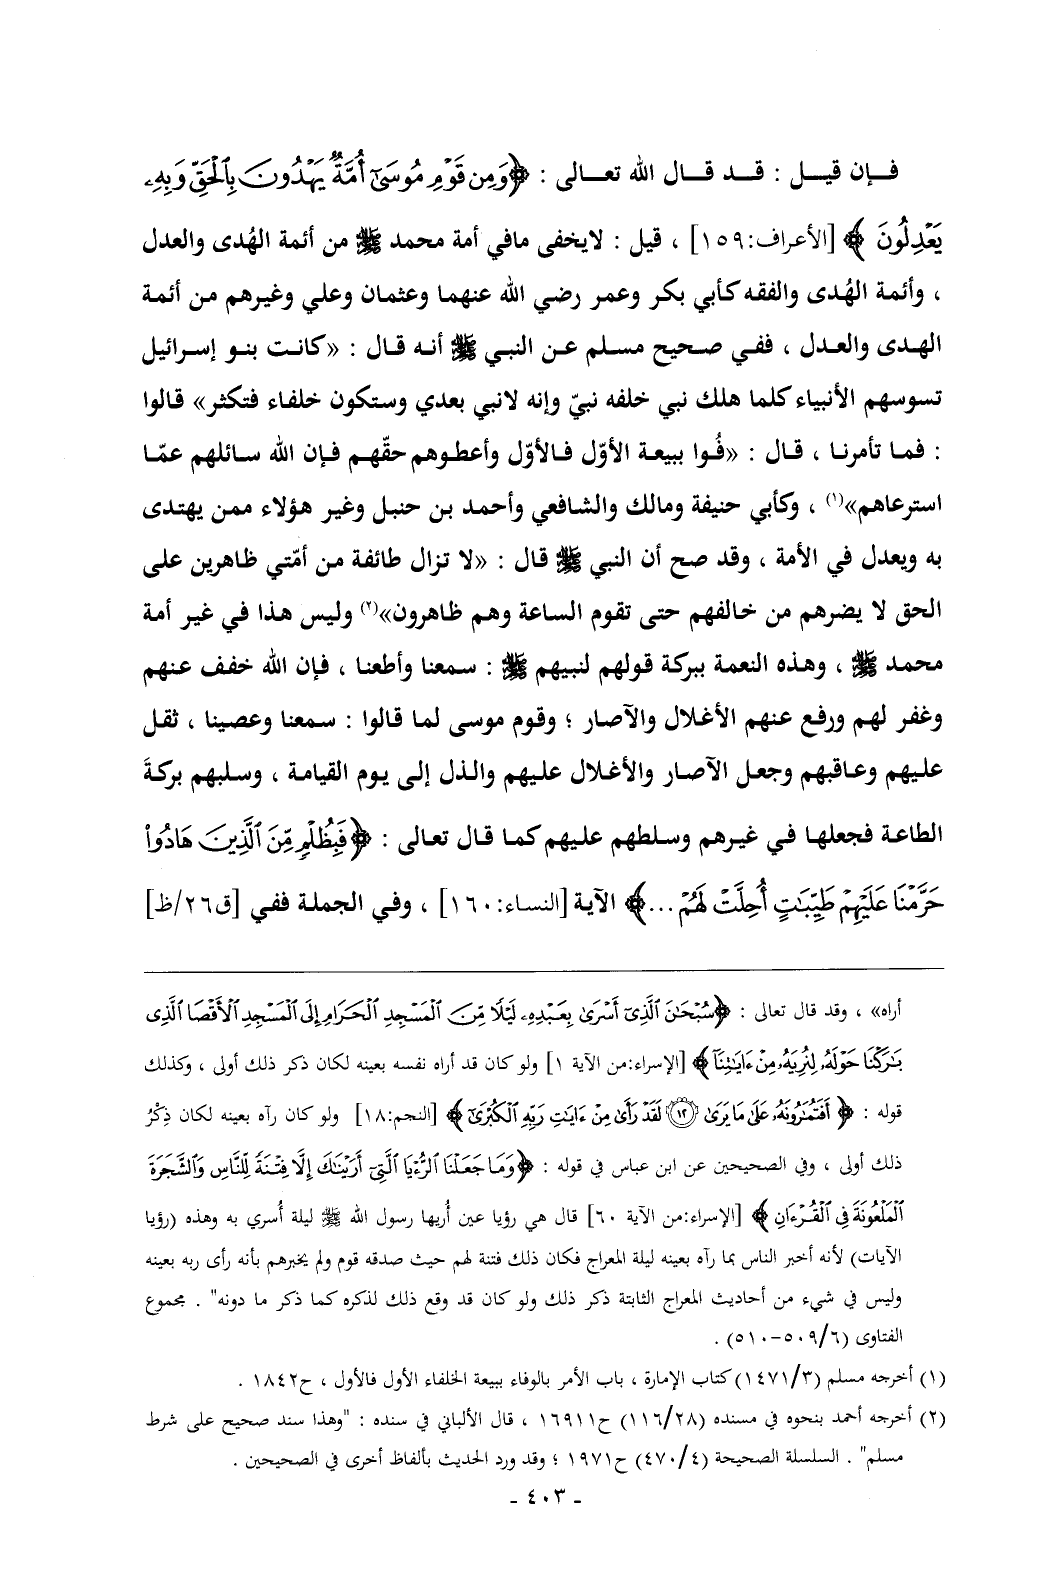 فـإن قيـل : قـد قـال الله تعـالى : ﴿وَمِن قَوْمِ مُوسَىٰٓ أُمَّةٌ يَهْدُونَ بِٱلْحَقِّ وَبِهِۦ
يَعْدِلُونَ ﴾ [الأعراف:١٥٩] ، قيل : لايخفى مافي أمة محمد ﷺ من أئمة الهُدى والعدل
، وأئمة الهُدى والفقه كأبي بكر وعمر رضي الله عنهما وعثمان وعلي وغيرهم من أئمة
الهدى والعدل ، ففي صحيح مسلم عن النبي ﷺ أنه قال : «كانت بنو إسرائيل
تسوسهم الأنبياء كلما هلك نبي خلفه نبيّ وإنه لانبي بعدي وستكون خلفاء فتكثر» قالوا
: فما تأمرنا ، قال : «فُوا ببيعة الأوّل فالأوّل وأعطوهم حقّهم فإن الله سائلهم عمّا
استرعاهم»(١) ، وكأبي حنيفة ومالك والشافعي وأحمد بن حنبل وغير هؤلاء ممن يهتدى
به ويعدل في الأمة ، وقد صح أن النبي ﷺ قال : «لا تزال طائفة من أمّتي ظاهرين على
الحق لا يضرهم من خالفهم حتى تقوم الساعة وهم ظاهرون»(٢) وليس هذا في غير أمة
محمد ﷺ ، وهذه النعمة ببركة قولهم لنبيهم ﷺ : سمعنا وأطعنا ، فإن الله خفف عنهم
وغفر لهم ورفع عنهم الأغلال والآصار ؛ وقوم موسى لما قالوا : سمعنا وعصينا ، ثقل
عليهم وعاقبهم وجعل الآصار والأغلال عليهم والذل إلى يوم القيامة ، وسلبهم بركةَ
الطاعة فجعلها في غيرهم وسلطهم عليهم كما قال تعالى : ﴿فَبِظُلْمٍ مِّنَ ٱلَّذِينَ هَادُوا۟
حَرَّمْنَا عَلَيْهِمْ طَيِّبَٰتٍ أُحِلَّتْ لَهُمْ ...﴾ الآية [النساء:١٦٠] ، وفي الجملة ففي [ق٢٦/ظ]
أراه» ، وقد قال تعالى : ﴿سُبْحَٰنَ ٱلَّذِىٓ أَسْرَىٰ بِعَبْدِهِۦ لَيْلًا مِّنَ ٱلْمَسْجِدِ ٱلْحَرَامِ إِلَى ٱلْمَسْجِدِ ٱلْأَقْصَا ٱلَّذِى
بَٰرَكْنَا حَوْلَهُۥ لِنُرِيَهُۥ مِنْ ءَايَٰتِنَآ ﴾ [الإسراء:من الآية ١] ولو كان قد أراه نفسه بعينه لكان ذكر ذلك أولى ، وكذلك
قوله : ﴿ أَفَتُمَٰرُونَهُۥ عَلَىٰ مَا يَرَىٰ ﴿١٢﴾ لَقَدْ رَأَىٰ مِنْ ءَايَٰتِ رَبِّهِ ٱلْكُبْرَىٰٓ ﴾ [النجم:١٨] ولو كان رآه بعينه لكان ذِكْرُ
ذلك أولى ، وفي الصحيحين عن ابن عباس في قوله : ﴿وَمَا جَعَلْنَا ٱلرُّءْيَا ٱلَّتِىٓ أَرَيْنَٰكَ إِلَّا فِتْنَةً لِّلنَّاسِ وَٱلشَّجَرَةَ
ٱلْمَلْعُونَةَ فِى ٱلْقُرْءَانِ ﴾ [الإسراء:من الآية ٦٠] قال هي رؤيا عين أُريها رسول الله ﷺ ليلة أُسري به وهذه (رؤيا
الآيات) لأنه أخبر الناس بما رآه بعينه ليلة المعراج فكان ذلك فتنة لهم حيث صدقه قوم ولم يخبرهم بأنه رأى ربه بعينه
وليس في شيء من أحاديث المعراج الثابتة ذكر ذلك ولو كان قد وقع ذلك لذكره كما ذكر ما دونه" . مجموع
الفتاوى (٥٠٩/٦-٥١٠) .
(١) أخرجه مسلم (١٤٧١/٣) كتاب الإمارة ، باب الأمر بالوفاء ببيعة الخلفاء الأول فالأول ، ح١٨٤٢ .
(٢) أخرجه أحمد بنحوه في مسنده (١١٦/٢٨) ح١٦٩١١ ، قال الألباني في سنده : "وهذا سند صحيح على شرط
مسلم" . السلسلة الصحيحة (٤٧٠/٤) ح١٩٧١ ؛ وقد ورد الحديث بألفاظ أخرى في الصحيحين .
- ٤٠٣ -